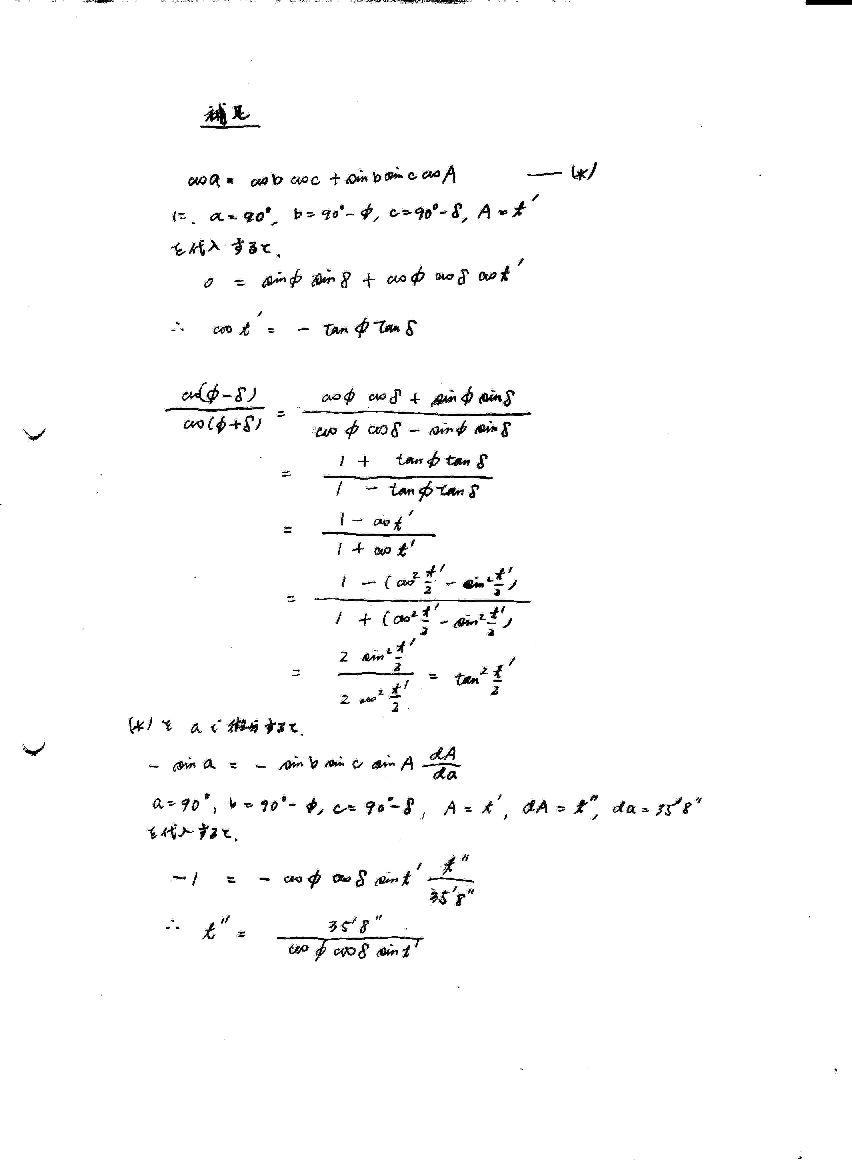 補足
cos a = cos b cos c + sin b sin c cos A —— (*)
に、a=90°, b=90°-φ, c=90°-δ, A=t′
を代入すると、
0 = sinφ sinδ + cosφ cosδ cos t′
∴ cos t′ = - tanφ tanδ
cos(φ-δ) / cos(φ+δ) = (cosφ cosδ + sinφ sinδ) / (cosφ cosδ - sinφ sinδ)
= (1 + tanφ tanδ) / (1 - tanφ tanδ)
= (1 - cos t′) / (1 + cos t′)
= (1 - (cos² t′/2 - sin² t′/2)) / (1 + (cos² t′/2 - sin² t′/2))
= (2 sin² t′/2) / (2 cos² t′/2) = tan² t′/2
(*)を a で微分すると、
- sin a = - sin b sin c sin A dA/da
a=90°, b=90°-φ, c=90°-δ, A=t′, dA=t″, da=35′8″
を代入すると、
-1 = - cosφ cosδ sin t′ t″/35′8″
∴ t″ = 35′8″ / (cosφ cosδ sin t′)